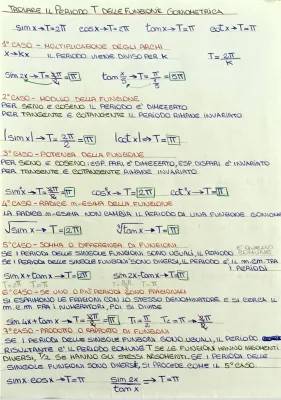 TROVARE IL PERIODO T DELLE FUNZIONE GONIOMETRICA
sin x → T=2π cos x → T=2π tan x → T=π cot x → T=π
1° CASO - MOLTIPLICAZIONE DEGLI ARCHI
x → kx IL PERIODO VIENE DIVISO PER K T = 2π/K
sin 2x → T = 2π/2 = π tan x/5 → T = = 5π
2° CASO - MODULO DELLA FUNZIONE
PER SENO E COSENO IL PERODO E' DIMEZZATO
PER TANGENTE E COTANGENTE IL PERIODO RIMANE INVARIATO
|sin x| → T = 2π/2 = π |cot x| → T = π
3° CASO - POTENZA DELLA FUNZIONE
PER SENO E COSENO: ESP. PARI E' DIMEZZATO, ESP. DISPARI E' INVARIATO
PER TANGENTE E COTANGENTE RIMANE INVARIATO
→ T = 2π/2 = π → T = 2π → T = π
4° CASO - RADICE M-ESIMA DELLA FUNZIONE
LA RADICE M-ESIMA NON CAMBIA IL PERIODO DI UNA FUNZIONE GONIOM
√sin x → T = 2π tan x → T = π
5° CASO - SOMMA O DIFFERENZA DI FUNZIONI
SE I PERIODI DELLE SINGOLE FUNZIONI SONO UGUALI, IL PERIODO
SE I PERIODI DELLE SINGOLE FUNZIONI SONO DIVERSI, IL PERIODO E' IL m.c.m. TRA
I PERIODI
sin x + tan x → T = 2π sin 2x - tan x → T = π
6° CASO - SE UNO O PIU' PERIODI SONO FRAZIONARI
SI ESPRIMONO LE FRAZIONI CON LO STESSO DENOMINATORE E SI CERCA IL
m.c.m. FRA I NUMERATORI, POI SI DIVIDE
sin 4x + tan x →
7° CASO - PRODOTTO O RAPPORTO DI FUNZIONI
SE I PERIODI DELLE SINGOLE FUNZIONI SONO UGUALI, IL PERIODO
RISULTANTE E' IL PERIODO COMUNE T SE LE FUNZIONI HANNO NOMENTI
DIVERSI, T/2 SE HANNO GLI STESSI MOMENTI. SE I PERIODI DELLE
SINGOLE FUNZIONI SONO DIVERSI, SI PROCEDE COME IL 5° CASO.
sin x cos x → T = π sin 2x / tan x → T = π